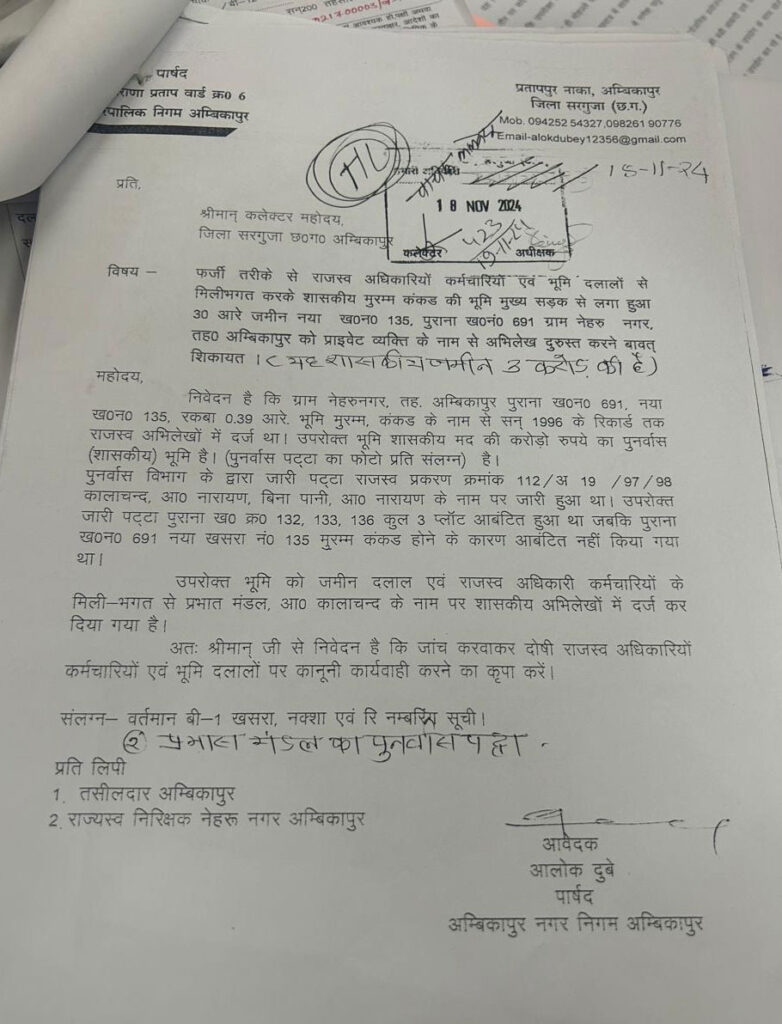 सन200
0217-00003/
आवश्यक हो,पक्षी अथवा
आदेशों का
पार्षद
राणा प्रताप वार्ड क्र0 6
पालिक निगम अम्बिकापुर
प्रतापपुर नाका, अम्बिकापुर
जिला सरगुजा (छ.ग.)
Mob. 094252 54327,09826190776
Email-alokdubey12356@gmail.com
TL
18-11-24
18 NOV 2024
423
19-11-24
कलेक्टर अधीक्षक
प्रति,
श्रीमान् कलेक्टर महोदय,
जिला सरगुजा छ0ग0 अम्बिकापुर
विषय – फर्जी तरीके से राजस्व अधिकारियों कर्मचारियों एवं भूमि दलालों से
मिलीभगत करके शासकीय मुरम्म कंकड की भूमि मुख्य सड़क से लगा हुआ
30 आरे जमीन नया ख0नं0 135, पुराना ख0नं0 691 ग्राम नेहरु नगर,
तह0 अम्बिकापुर को प्राइवेट व्यक्ति के नाम से अभिलेख दुरुस्त करने बावत्
शिकायत । (यह शासकीय जमीन 3 करोड़ की है)
महोदय,
निवेदन है कि ग्राम नेहरुनगर, तह. अम्बिकापुर पुराना ख0न0 691, नया
ख0न0 135, रकबा 0.39 आरे. भूमि मुरम्म, कंकड के नाम से सन् 1996 के रिकार्ड तक
राजस्व अभिलेखों में दर्ज था। उपरोक्त भूमि शासकीय मद की करोड़ो रुपये का पुनर्वास
(शासकीय) भूमि है। (पुनर्वास पट्टा का फोटो प्रति संलग्न) है।
पुनर्वास विभाग के द्वारा जारी पट्टा राजस्व प्रकरण क्रमांक 112/अ 19 /97/98
कालाचन्द, आ0 नारायण, बिना पानी, आ0 नारायण के नाम पर जारी हुआ था। उपरोक्त
जारी पट्टा पुराना ख0 क्र0 132, 133, 136 कुल 3 प्लॉट आबंटित हुआ था जबकि पुराना
ख0न0 691 नया खसरा नं0 135 मुरम्म कंकड होने के कारण आबंटित नहीं किया गया
था।
उपरोक्त भूमि को जमीन दलाल एवं राजस्व अधिकारी कर्मचारियों के
मिली–भगत से प्रभात मंडल, आ0 कालाचन्द के नाम पर शासकीय अभिलेखों में दर्ज कर
दिया गया है।
अतः श्रीमान् जी से निवेदन है कि जांच करवाकर दोषी राजस्व अधिकारियों
कर्मचारियों एवं भूमि दलालों पर कानूनी कार्यवाही करने का कृपा करें।
संलग्न– वर्तमान बी–1 खसरा, नक्शा एवं रि नम्बरिंग सूची।
(2) प्रभास मंडल का पुनर्वास पट्टा .
प्रति लिपी
1. तसीलदार अम्बिकापुर
2. राज्यस्व निरिक्षक नेहरू नगर अम्बिकापुर
आवेदक
आलोक दुबे
पार्षद
अम्बिकापुर नगर निगम अम्बिकापुर